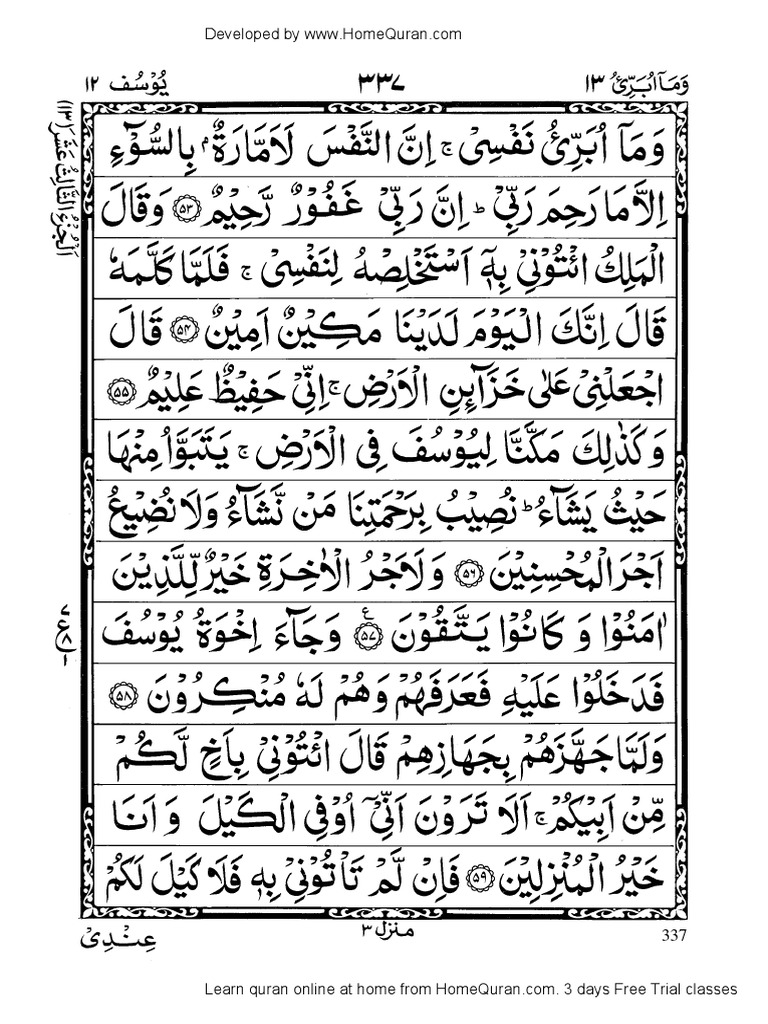 Developed by www.HomeQuran.com
وَمَآ اُبَرِّئُ ١٣ ٣٣٧ يُوْسُف ١٢
اَلْجُزْءُ الثَّالِثُ عَشَرَ (١٣)
وَمَآ اُبَرِّئُ نَفْسِىْ ۚ اِنَّ النَّفْسَ لَاَمَّارَةٌۢ بِالسُّوْٓءِ
اِلَّا مَا رَحِمَ رَبِّىْ ؕ اِنَّ رَبِّىْ غَفُوْرٌ رَّحِيْمٌ ﴿۵۳﴾ وَقَالَ
الْمَلِكُ ائْتُوْنِىْ بِهٖٓ اَسْتَخْلِصْهُ لِنَفْسِىْ ۚ فَلَمَّا كَلَّمَهٗ
قَالَ اِنَّكَ الْيَوْمَ لَدَيْنَا مَكِيْنٌ اَمِيْنٌ ﴿۵۴﴾ قَالَ
اجْعَلْنِىْ عَلٰى خَزَآئِنِ الْاَرْضِ ۚ اِنِّىْ حَفِيْظٌ عَلِيْمٌ ﴿۵۵﴾
وَكَذٰلِكَ مَكَّنَّا لِيُوْسُفَ فِى الْاَرْضِ ۚ يَتَبَوَّاُ مِنْهَا
حَيْثُ يَشَآءُ ؕ نُصِيْبُ بِرَحْمَتِنَا مَنْ نَّشَآءُ وَلَا نُضِيْعُ
اَجْرَ الْمُحْسِنِيْنَ ﴿۵۶﴾ وَلَاَجْرُ الْاٰخِرَةِ خَيْرٌ لِّلَّذِيْنَ
اٰمَنُوْا وَ كَانُوْا يَتَّقُوْنَ ﴿۵۷﴾ ع وَجَآءَ اِخْوَةُ يُوْسُفَ
فَدَخَلُوْا عَلَيْهِ فَعَرَفَهُمْ وَهُمْ لَهٗ مُنْكِرُوْنَ ﴿۵۸﴾
وَلَمَّا جَهَّزَهُمْ بِجَهَازِهِمْ قَالَ ائْتُوْنِىْ بِاَخٍ لَّكُمْ
مِّنْ اَبِيْكُمْ ۚ اَلَا تَرَوْنَ اَنِّىْٓ اُوْفِى الْكَيْلَ وَ اَنَا
خَيْرُ الْمُنْزِلِيْنَ ﴿۵۹﴾ فَاِنْ لَّمْ تَاْتُوْنِىْ بِهٖ فَلَا كَيْلَ لَكُمْ
عِنْدِىْ منزل ٣ 337
Learn quran online at home from HomeQuran.com. 3 days Free Trial classes